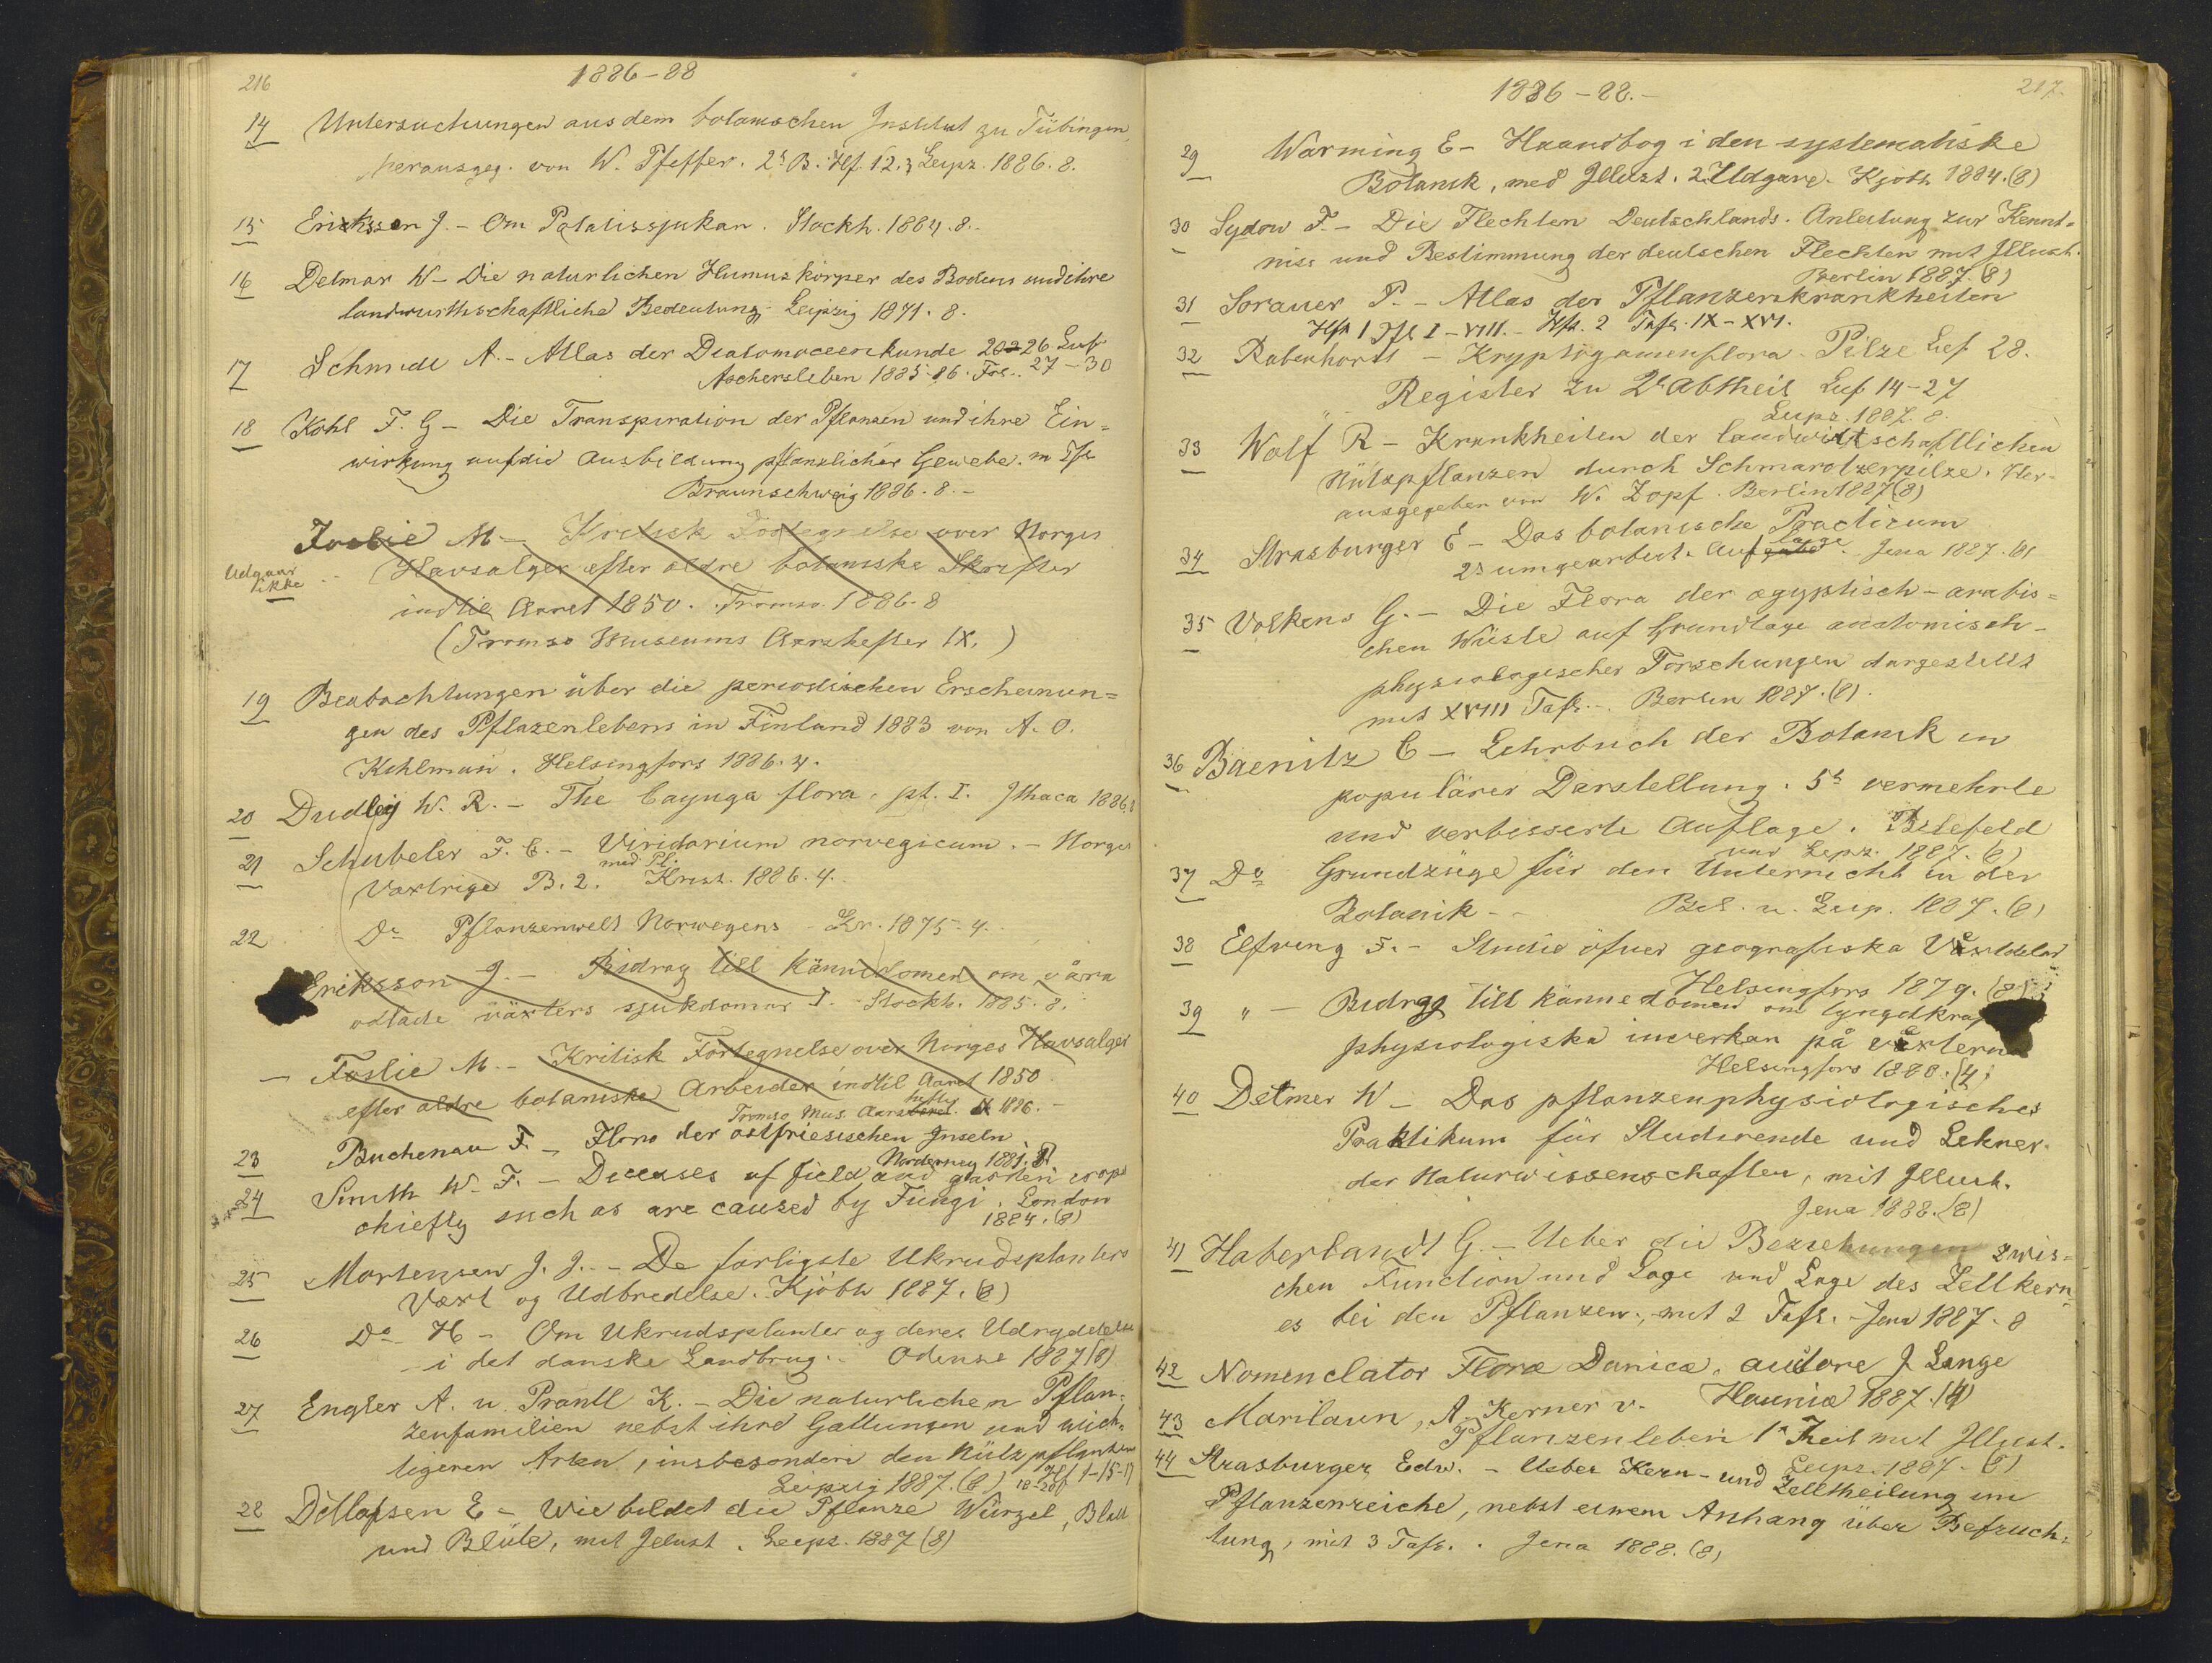 216
1886-88
14 Untersuchungen aus dem botanischen Institut zu Tübingen
herausgeg. von W. Pfeffer. 2s B. Hf. 1.2.3 Leipz. 1886. 8.
15 Eriksson J. - Om Potatissjukan. Stockh. 1884. 8.-
16 Detmar W - Die naturlichen Humuskörper des Bodens und ihre
landwirthschaftliche Bedeutung. Leipzig 1871. 8.
17 Schmidt A. - Atlas der Diatomaceenkunde 26 Lief
Aschersleben 1885-86. Fol. 27-30
18 Kohl F. G - Die Transpiration der Pflanzen und ihre Ein=
wirkung auf die Ausbildung pflanzlicher Gewebe. m Tfl
Braunschweig 1886. 8.-
Foslie M - Kritisk Fortegnelse over Norges
Udgaar ikke
Havsalger efter ældre botaniske Skrifter
indtil Aaret 1850. Tromsø. 1886. 8
(Tromsø Museums Aarshefter IX.)
19 Beobachtungen über die periodischen Erscheinun=
gen des Pflazenlebens in Finland 1883 von A. O.
Kihlman. Helsingfors 1886. 4.
20 Dudley W. R. - The Cayuga flora. pt. I. Ithaca 1886. 8
21 Schubeler F. C. - Viridarium norvegicum. - Norges
Vaxtrige B. 2. med Pl. Krist. 1886. 4.
22 Do Pflanzenwelt Norwegens - Kr. 1875-4.
Eriksson J. - Bidrag till kännedomen om våra
odlade växters sjukdomar I. Stockh. 1885. 8.
- Foslie M. - Kritisk Fortegnelse over Norges Havsalger
efter ældre botaniske Arbeider indtil Aaret 1850
Tromsø Mus. Aarshefter IX 1886.-
23 Buchenau F. - Flora der ostfriesischen Inseln
Norderney 1881. 8.
24 Smith W. F. - Diceases of field and garden crops
chiefly such as are caused by Fungi. London
1884. (8)
25 Mortensen J. J. - De farligste Ukrudsplanters
Vaxt og Udbredelse. Kjøbh 1887. (8)
26 Do H - Om Ukrudsplanter og deres Udryddelse
i det danske Landbrug. Odense 1887 (8)
27 Engler A. u. Prantl K. - Die naturlichen Pflan=
zenfamilien nebst ihre Gattungen und wich=
tigeren Arten, insbesondere den Nützpflanzen
Leipzig 1887. (8) Hf 1-15-17
18-20
28 Detlefsen E - Wie bildet die Pflanze Würzel, Blatt
und Blüte, mit Illust. Leipz. 1887 (8)
217.
1886-88.-
29 Warming E - Haandbog i den systematiske
Botanik, med Illust. 2 Udgave. Kjøbh 1884. (8)
30 Sydow F. - Die Flechten Deutschlands. Anleitung zur Kennt=
niss und Bestimmung der deutschen Flechten mit Illust.
Berlin 1887. (8)
31 Sorauer P. - Atlas der Pflanzenkrankheiten
Hft. 1 Tfl I-VIII. - Hft. 2 Tafl. IX-XVI.
32 Rabenhorst - Kryptogamenflora. Pilze Lief 28.
" Register zu 2e Abtheil Lief 14-27
Leipz. 1887. 8.
33 Wolf R - Krankheiten der landwirtschaftlichen
Nützpflanzen durch Schmarotzerpilze. Her-
ausgegeben von W. Zopf. Berlin 1887 (8)
34 Strasburger E - Das botanische Practicum
2s umgearbeit. Auflage. Jena 1887. (8)
35 Volkens G. - Die Flora der ægyptisch-arabis=
chen Wüste auf Grundlage anatomisch-
physiologischer Forschungen dargestellt
mit XVIII Tafl. Berlin 1887. (8).
36 Baenitz C - Lehrbuch der Botanik in
populärer Darstellung. 5te vermehrte
und verbisserte Auflage. Bielefeld
und Leipz. 1887. (8)
37 Do Grundzüge für den Unterricht in der
Botanik - Biel. u. Leip. 1887. (8)
38 Elfving F. - Studie öfver geografiska Vextdelar
Helsingfors 1879. (8)
39 " - Bidrag till kännedomen om tyngdkraf
physiologiska inverkan på vexterna
Helsingfors 1880. (4)
40 Detmer W - Das pflanzenphysiologisches
Praktikum für Studirende und Lehrer
der Naturwissenschaften, mit Illust.
Jena 1888. (8)
41 Haberlandt G. - Ueber die Beziehungen zwis=
chen Function und Lage und Lage des Zellkern=
es bei den Pflanzen, mit 2 Tafl. - Jena 1887. 8
42 Nomenclator Floræ Danicæ, auctore J Lange
Hauniæ 1887. (4)
43 Marilaun, A. Kerner v.
Pflanzenleben 1r Theil mit Illust.
Leipz. 1887. (8)
44 Strasburger Edw. - Ueber Kern- und Zelltheilung im
Pflanzenreiche, nebst einem Anhang über Befruch=
tung, mit 3 Tafl. . Jena 1888. (8)